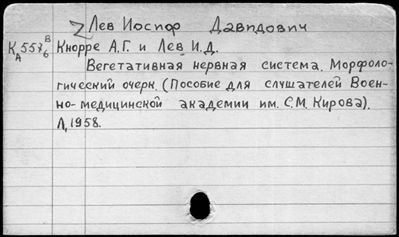 Лев Иосифор Давидович
К 558 В
А 6
Кнорре А.Г. и Лев И.Д.
Вегетативная нервная система. Морфоло-
гический очерк. (Пособие для слушателей Воен-
но-медицинской академии им. С.М. Кирова).
Л, 1958.